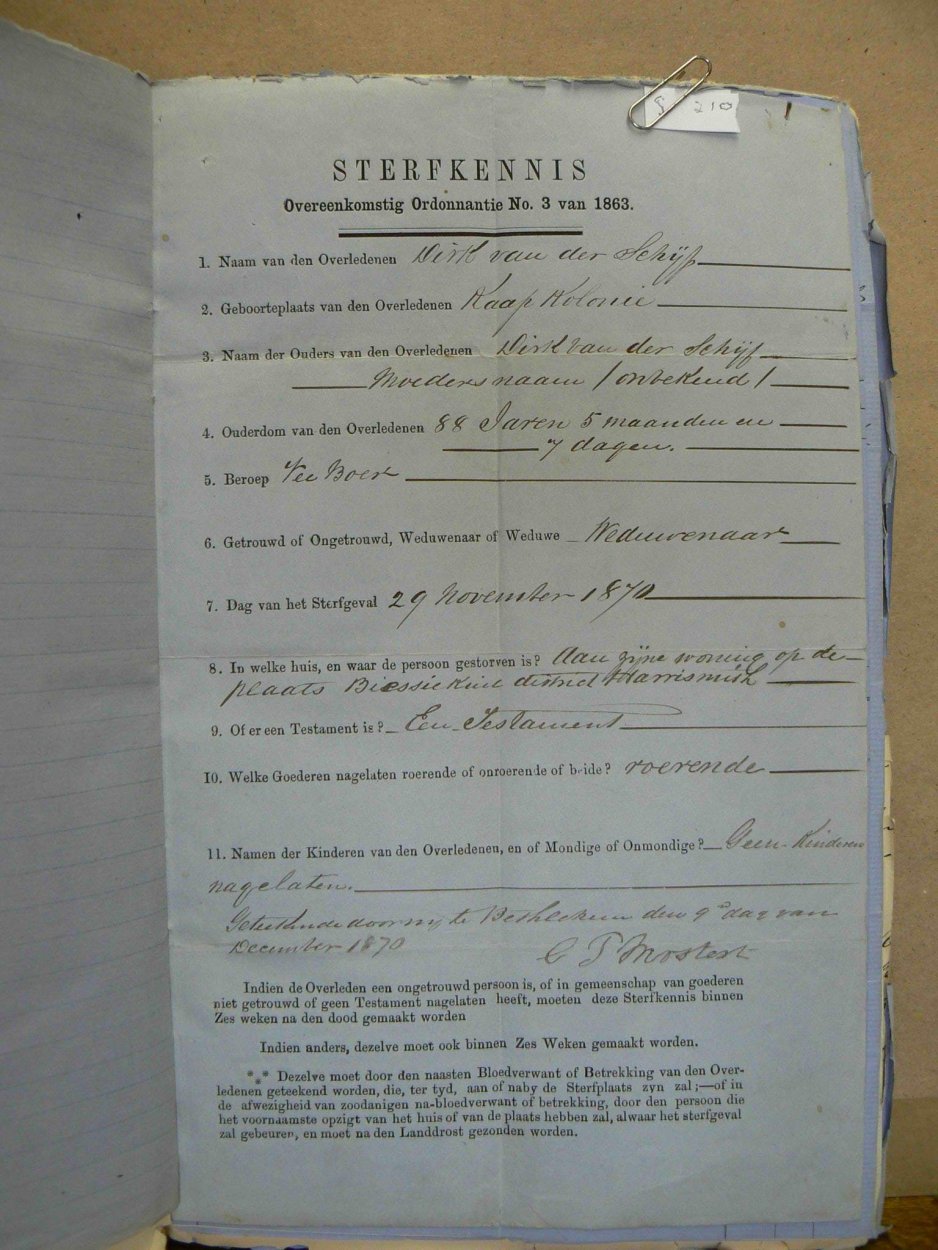 S 210
STERFKENNIS
Overeenkomstig Ordonnantie No. 3 van 1863.
1. Naam van den Overledenen Dirk van der Schijf
2. Geboorteplaats van den Overledenen Kaap Kolonie
3. Naam der Ouders van den Overledenen Dirk van der Schijf
Moeders naam / onbekend /
4. Ouderdom van den Overledenen 88 Jaren 5 maanden en
7 dagen.
5. Beroep Vee Boer
6. Getrouwd of Ongetrouwd, Weduwenaar of Weduwe Weduwenaar
7. Dag van het Sterfgeval 29 November 1870
8. In welke huis, en waar de persoon gestorven is? Aan zijne woning op de
plaats district Harrismith
9. Of er een Testament is? Een Testament
10. Welke Goederen nagelaten roerende of onroerende of beide? roerende
11. Namen der Kinderen van den Overledenen, en of Mondige of Onmondige? Geen Kinderen
nagelaten.
door mij te Bethlehem den 9de dag van
December 1870 C T Mostert
Indien de Overleden een ongetrouwd persoon is, of in gemeenschap van goederen
niet getrouwd of geen Testament nagelaten heeft, moeten deze Sterfkennis binnen
Zes weken na den dood gemaakt worden
Indien anders, dezelve moet ook binnen Zes Weken gemaakt worden.
*** Dezelve moet door den naasten Bloedverwant of Betrekking van den Over-
ledenen geteekend worden, die, ter tyd, aan of naby de Sterfplaats zyn zal;—of in
de afwezigheid van zoodanigen na-bloedverwant of betrekking, door den persoon die
het voornaamste opzigt van het huis of van de plaats hebben zal, alwaar het sterfgeval
zal gebeuren, en moet na den Landdrost gezonden worden.